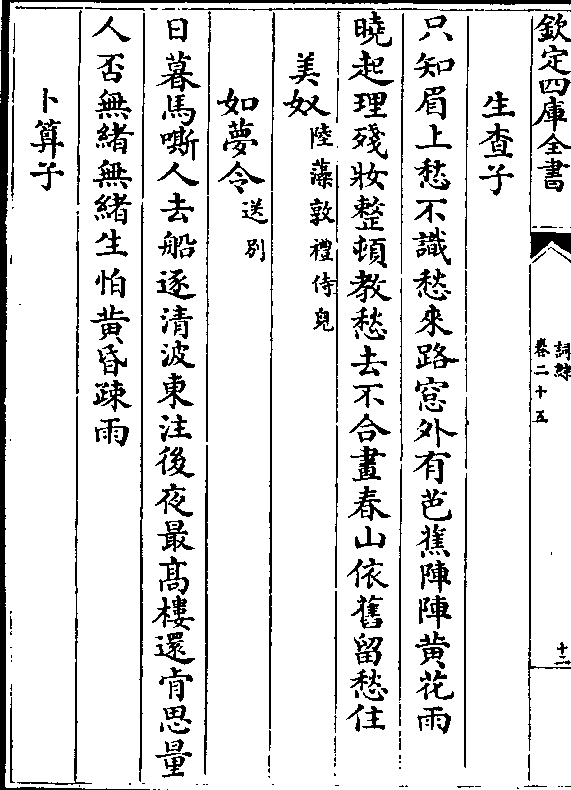 欽定四庫全書
詞綜
卷二十五
十二
生查子
只知眉上愁不識愁來路窓外有芭蕉陣陣黄花雨
曉起理殘妝整頓教愁去不合畫春山依舊留愁住
美奴陸藻敦禮侍兒
如夢令送别
日暮馬嘶人去船逐清波東注後夜最髙樓還肯思量
人否無緒無緒生怕黄昏疎雨
卜算子